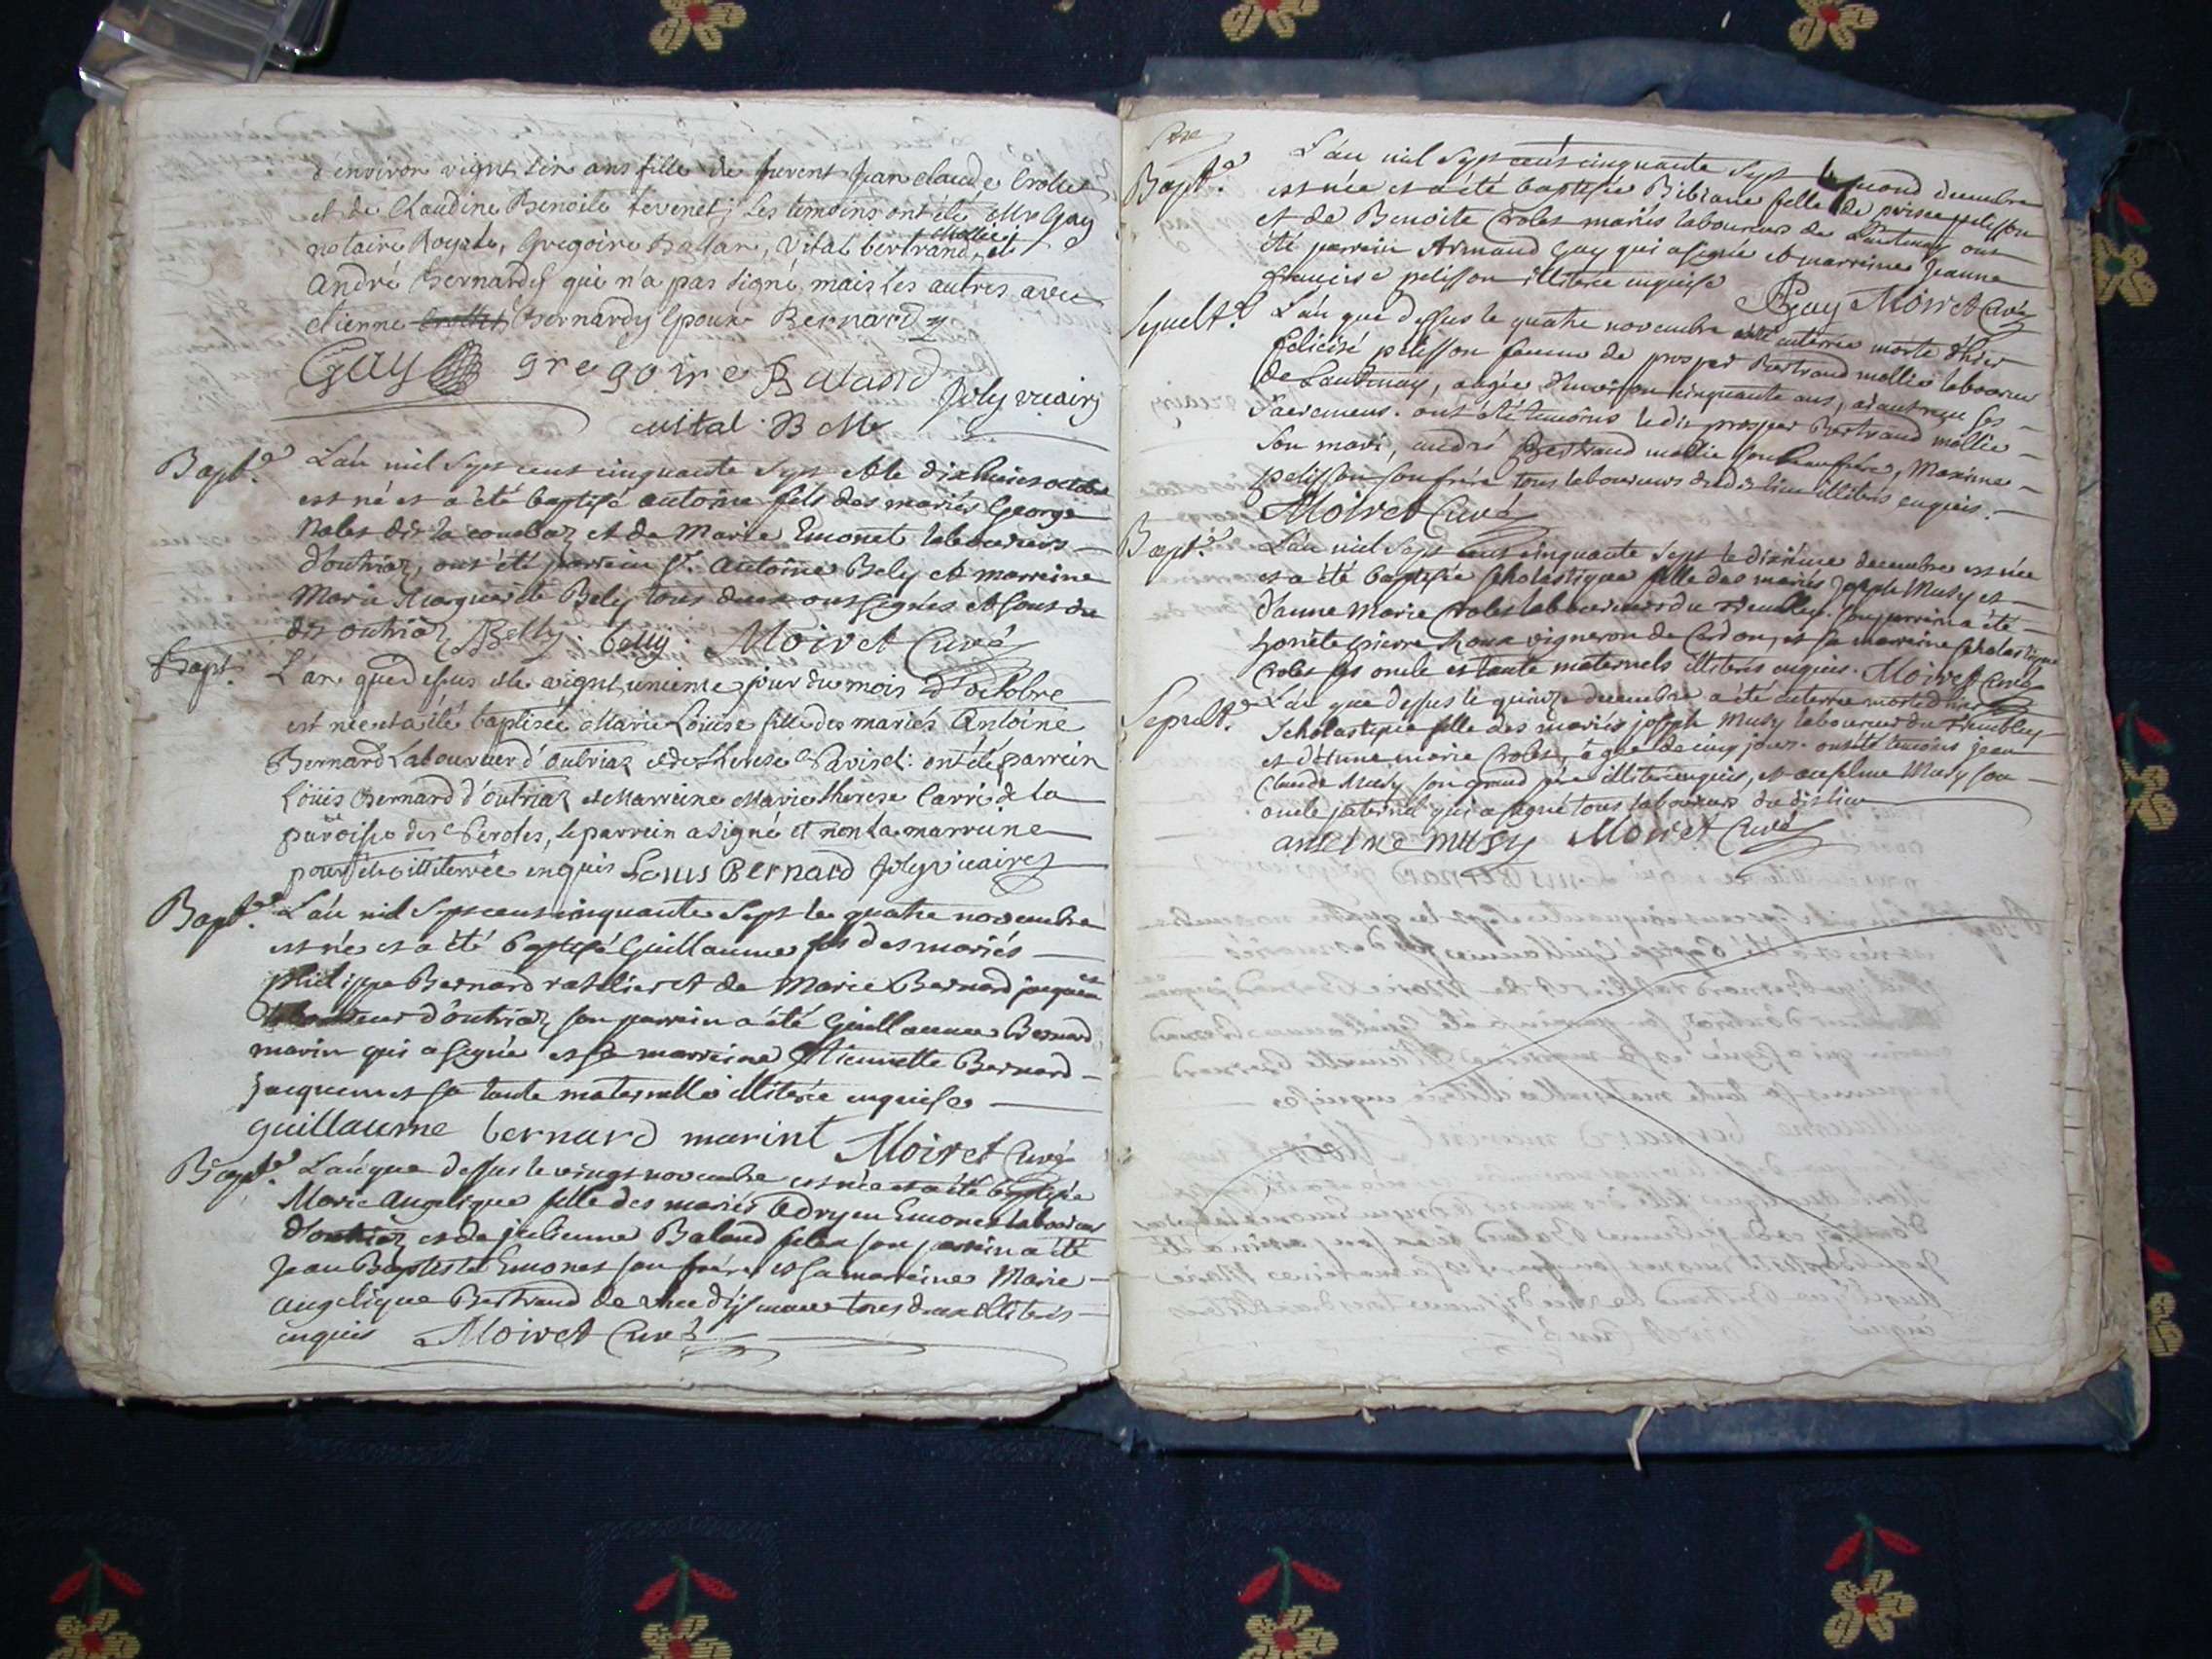 d'environ vignt six ans fille de furent Jean claude Crolet
et de Claudine Benoite tevenet; Les temoins ont été Mr Gay
mollie
notaire Royale, Gregoire Ballan, Vital bertrand, et
andré Bernardy qui n'a pas signé, mais les autres avec
etienne Bernardy Epoux Bernardy
Gay gregoire Baland Joly vicaire
vital B M
Bapt.e L'an mil sept cent cinquante sept et le dixhuict octobre
est né et a été baptisé antoine fils des mariés George
Roles dit la combaz et de Marie Emonet laboureurs
d'outriaz, ont été parrein Sr. Antoine Bely et marreine
Marie Marguerite Bely tous deux ont signés et sont du
dit outriaz ABelly. belly. Moiret Curé
Bapt. L'an que dessus et le vignt unieme jour du mois d'octobre
est née et a été baptisée Marie Louise fille des mariés Antoine
Bernard Laboureur d'outriaz et de therese Pariset: ont été parrein
Louis Bernard d'outriaz et Marreine Marie therese Carri de la
paroisse des Peroles, le parrein a signé et non la marreine
pour être illiterée enquis Louis Bernard Joly vicaire
Bapt.e L'an mil sept cent cinquante sept le quatre novembre
est né et a été baptisé Guillaume fils des mariés
philippe Bernard ratelier et de Marie Bernard jacquemet
d'outriaz, son parrein a été Guillaume Bernard
marin qui a signé et sa marreine Etiennette Bernard
Jacquemet sa tante maternelle illiterée enquise
guillaume bernard marint Moiret Curé
Bapt.e L'an que dessus le vingt novembre est née et a été baptisée
Marie Angelique fille des mariés Adryen Emonet laboureur
d'outriaz et de julienne Baland son parrein a été
Jean Baptiste Emonet son frere et sa marreine Marie
angelique Bertrand de tous deux illiterés
enquis Moiret Curé
Bapt.e L'an mil sept cent cinquante sept le second decembre
est née et a été baptisée Bibiane fille de pelisson
et de Benoite Crolet mariés laboureurs de Lantenay ont
été parrein Armand Gay qui a signé et marreine Jeanne
francoise pelisson illiterée enquise
AGay Moiret Curé
Sepult.e L'an que dessus le quatre novembre a été enterrée morte d'hier
felicité pelisson femme de prosper Bertrand mollie laboureur
de Lantenay, agée d'environ cinquante ans, aiant reçu ses
sacremens. ont été temoins ledit prosper Bertrand mollie
son mari, andré Bertrand mollie son beaufrere, Maxime
pelisson son frere tous laboureurs dudit lieu illiterés enquis.
Moiret Curé
Bapt.e L'an mil sept cent cinquante sept le dixième decembre est née
et a été baptisée scholastique fille des mariés Joseph Musy et
d'anne Marie Crolet laboureurs du son parrein a été
honète pierre Roux vigneron de Cerdon, et sa marreine scholastique
Crolet ses oncle et tante maternels illiterés enquis. Moiret Curé
Sepult.e L'an que dessus le quinze decembre a été enterrée morte d'hier
scholastique fille des mariés joseph Musy laboureur du
et d'anne marie Crolet, agée de cinq jours. ont été temoins Jean
Claude Musy son grand pere illiteré enquis, et anselme Musy son
oncle paternel qui a signé tous laboureurs du dit lieu
anselme musy Moiret Curé